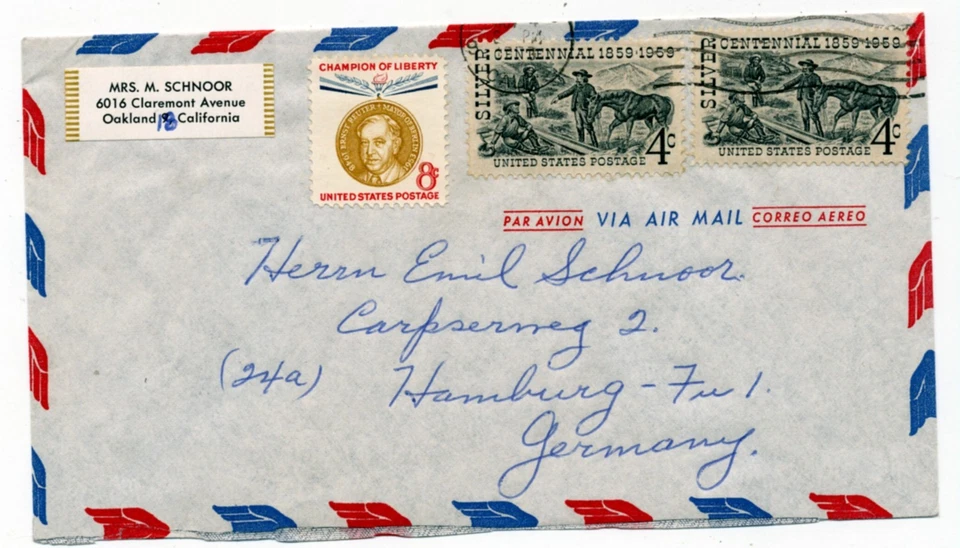 MRS. M. SCHNOOR
6016 Claremont Avenue
Oakland 18 California
CHAMPION OF LIBERTY
ERNST REUTER • MAYOR OF BERLIN
8c
UNITED STATES POSTAGE
SILVER CENTENNIAL 1859-1959
4c
UNITED STATES POSTAGE
SILVER CENTENNIAL 1859-1959
4c
UNITED STATES POSTAGE
PAR AVION VIA AIR MAIL CORREO AEREO
Herrn Emil Schnoor.
Carpserweg 2.
(24a) Hamburg-Fu 1.
Germany.